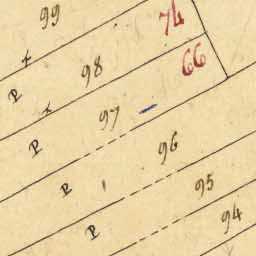 99
74
98
P
66
97
P
96
P
95
94
P